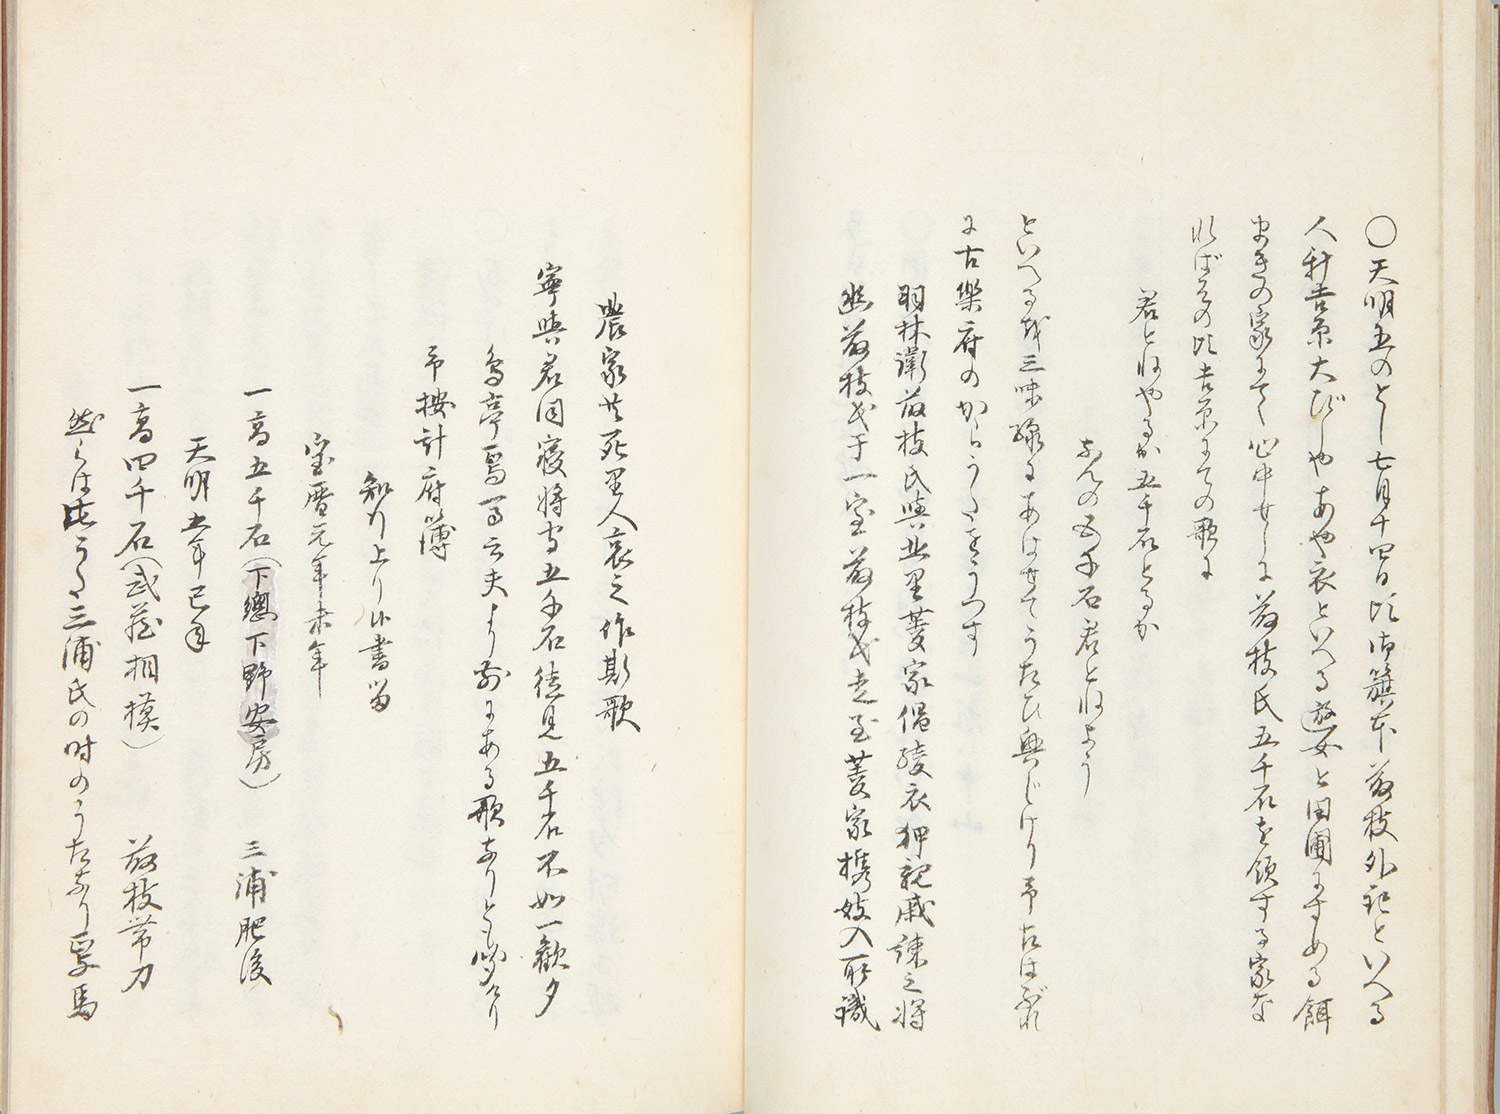 〇天明五のとし七月十四日比御籏本藤枝外記といへる
人新吉原大びしやあや衣といへる遊女と田圃にすめる餌
まきの家にて心中せしに藤枝氏五千石を領する家な
ればその比吉原にての歌に
君とねやるか五千石とるか
なんの五千石君とねよう
といへるを三味線にあはせてうたひ興じけり予たはぶれ
に古樂府のからうたをうつす
羽林衛藤枝氏與北里菱家倡綾衣狎親戚諫之将
幽藤枝氏于一室藤枝氏走至菱家携妓入所識
農家共死里人哀之作斯歌
寧與君同寝将守五千石徒見五千石不如一歓夕
烏亭焉馬云夫より前にある歌なりとも聞けり
予按計府簿
知行上り候書留
宝暦元年未年
一高五千石（下總下野安房）　三浦肥後
天明五年巳年
一高四千石（武蔵相模）　藤枝帯刀
然らば此うた三浦氏の時のうたなり焉馬